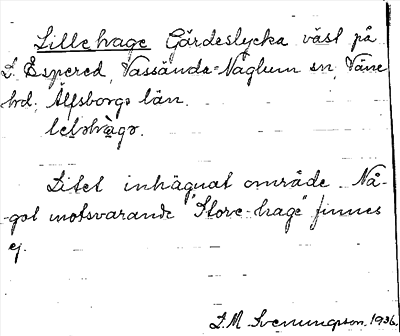 Lillehage Gärdeslycka väst på
L. Espered, Vassända-Naglum sn, Väne
hd, Älfsborgs län.
Litet inhägnat område. Nå-
got motsvarande "Store-hage" finnes
ej.
D. M. Svenungson. 1936.